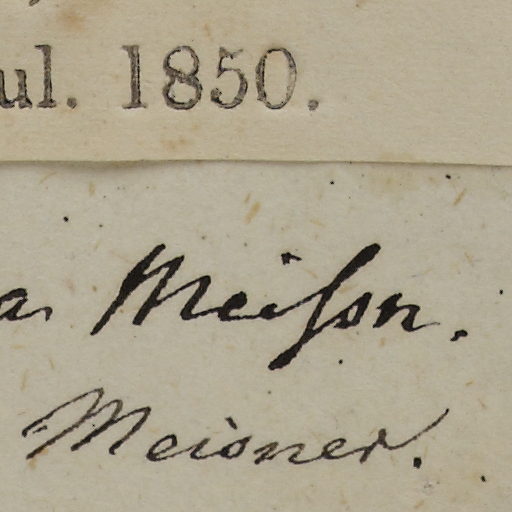 ul. 1850.
a Meiſsn.
Meisner.